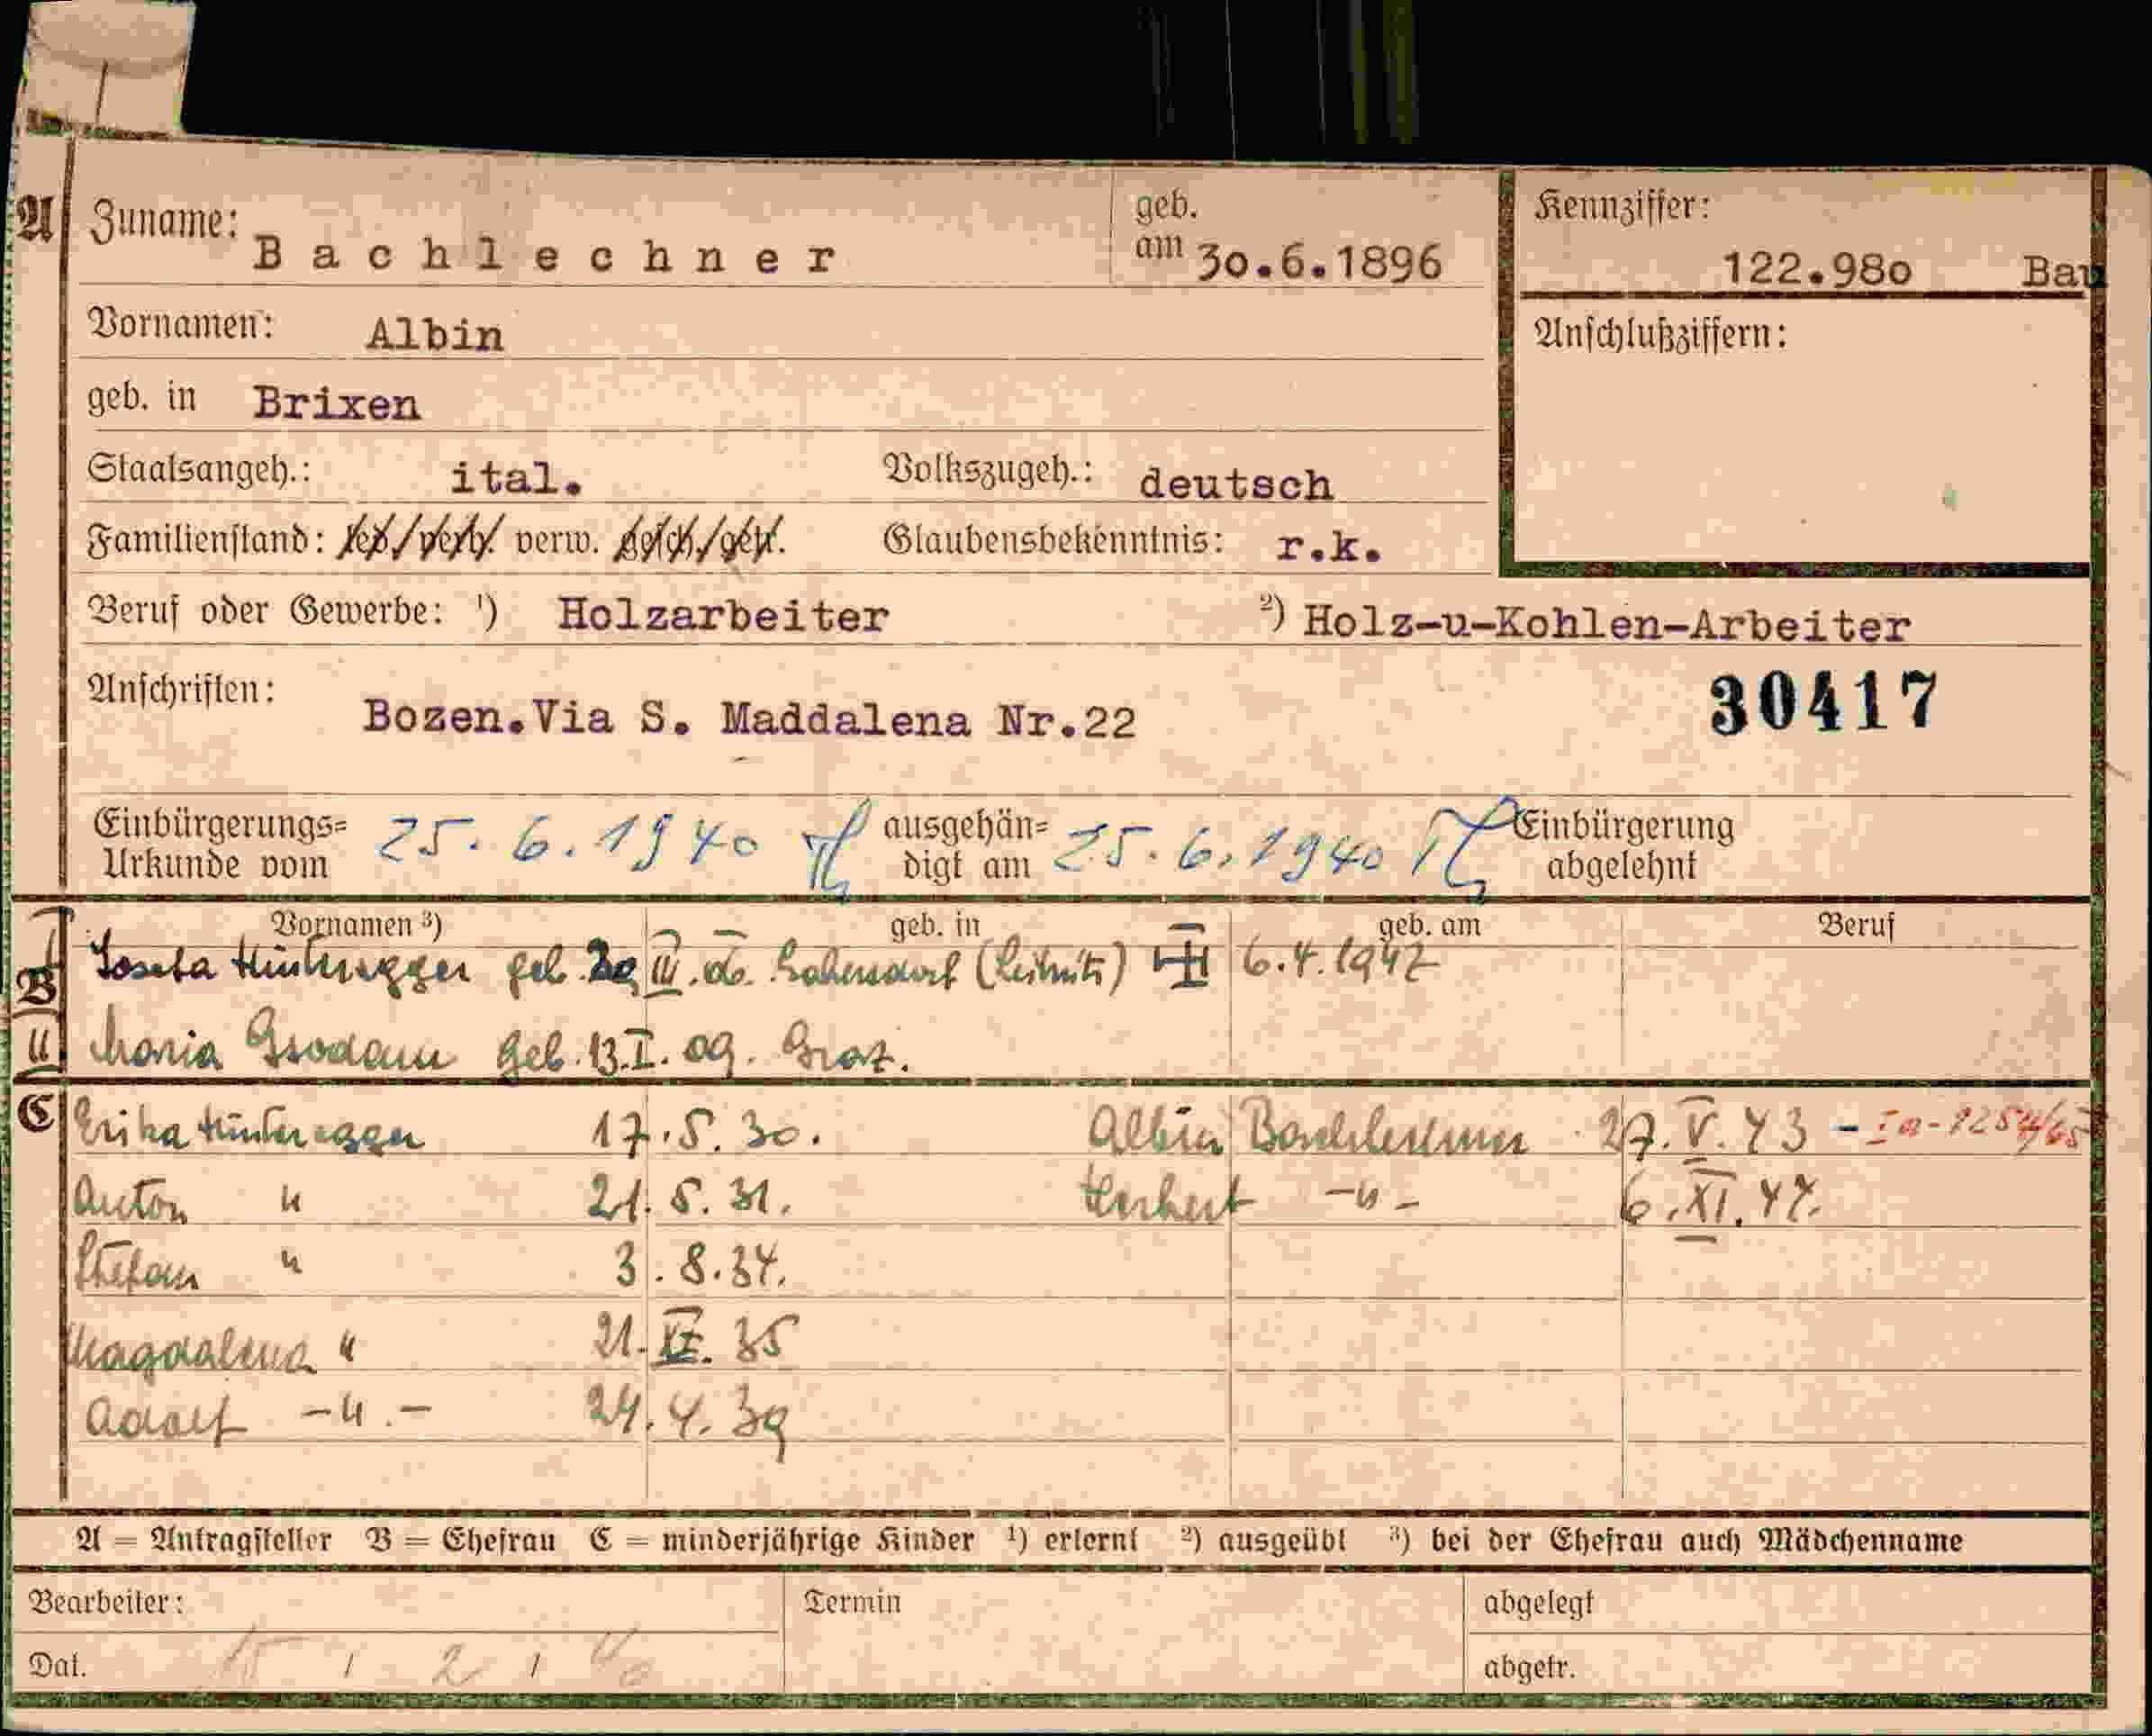 A Zuname: Bachlechner geb. am 30.6.1896 Kennziffer: 122.980 Bau
Vornamen: Albin Anschlußziffern:
geb. in Brixen
Staatsangeh.: ital. Volkszugeh.: deutsch
Familienstand: led./verh. verw. gesch./getr. Glaubensbekenntnis: r.k.
Beruf oder Gewerbe: ¹) Holzarbeiter ²) Holz-u-Kohlen-Arbeiter
Anschriften: Bozen.Via S. Maddalena Nr.22 30417
Einbürgerungs= Urkunde vom 25.6.1940 ausgehän= digt am 25.6.1940 Einbürgerung abgelehnt
Vornamen ³) geb. in geb. am Beruf
B I Josefa Hinteregger geb. III. 06. (Leibnitz) 6.4.1942
II Maria geb. 13.I.09. Graz.
C Erika Hinteregger 17.5.30. Albin Bachlechner 27.V.43 - Ia-1254/65
Anton " 21.5.31. Herbert -"- 6.XI.47.
Stefan " 3.8.34.
Magdalena " 21. 35
Adolf -"- 24.4.39
A = Antragsteller B = Ehefrau C = minderjährige Kinder ¹) erlernt ²) ausgeübt ³) bei der Ehefrau auch Mädchenname
Bearbeiter: Termin abgelegt
Dat. abgetr.